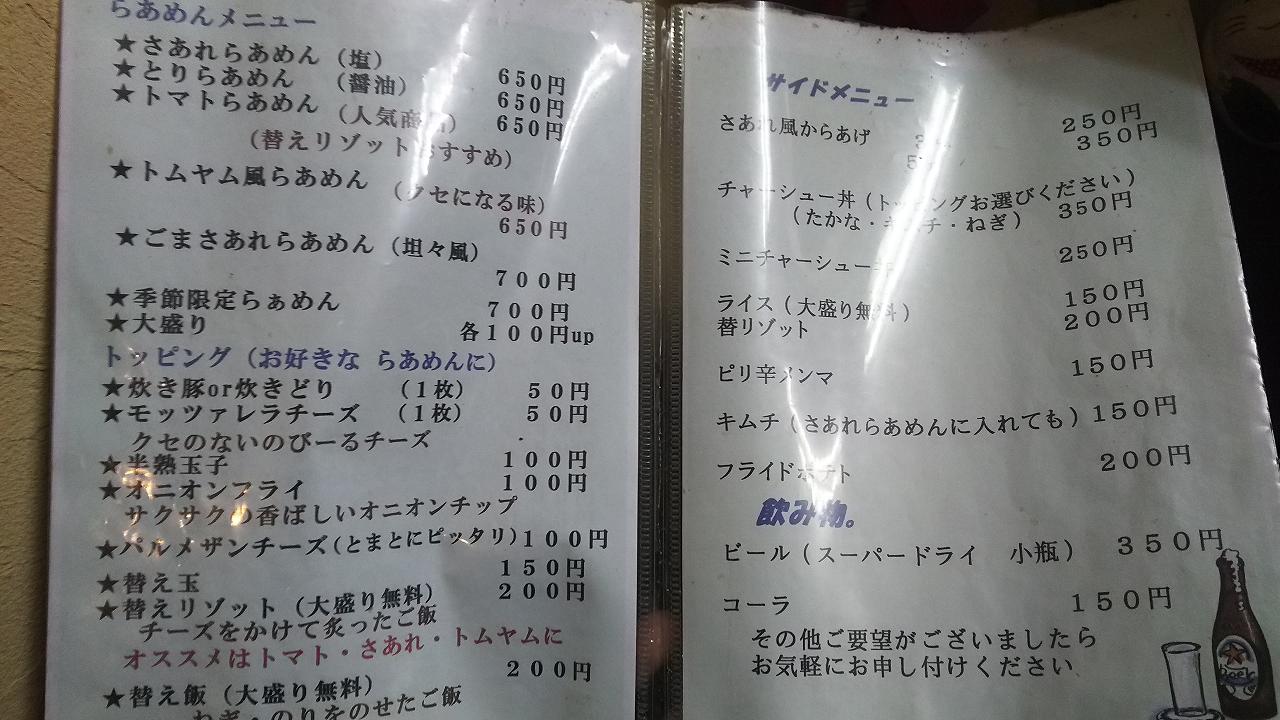 らあめんメニュー
★さあれらあめん（塩） 650円
★とりらあめん （醤油） 650円
★トマトらあめん （人気商品） 650円
（替えリゾットおすすめ）
★トムヤム風らあめん （クセになる味）
650円
★ごまさあれらあめん（坦々風）
700円
★季節限定らぁめん 700円
★大盛り 各100円up
トッピング（お好きな らあめんに）
★炊き豚or炊きどり （1枚） 50円
★モッツァレラチーズ （1枚） 50円
クセのないのびーるチーズ
★半熟玉子 100円
★オニオンフライ 100円
サクサクの香ばしいオニオンチップ
★パルメザンチーズ（とまとにピッタリ）100円
★替え玉 150円
★替えリゾット（大盛り無料） 200円
チーズをかけて炙ったご飯
オススメはトマト・さあれ・トムヤムに
★替え飯（大盛り無料） 200円
ねぎ・のりをのせたご飯
サイドメニュー
さあれ風からあげ 250円
350円
チャーシュー丼（トッピングお選びください）
（たかな・キムチ・ねぎ） 350円
ミニチャーシュー丼 250円
ライス（大盛り無料） 150円
替リゾット 200円
ピリ辛メンマ 150円
キムチ（さあれらあめんに入れても）150円
フライドポテト 200円
飲み物。
ビール（スーパードライ 小瓶） 350円
コーラ 150円
その他ご要望がございましたら
お気軽にお申し付けください